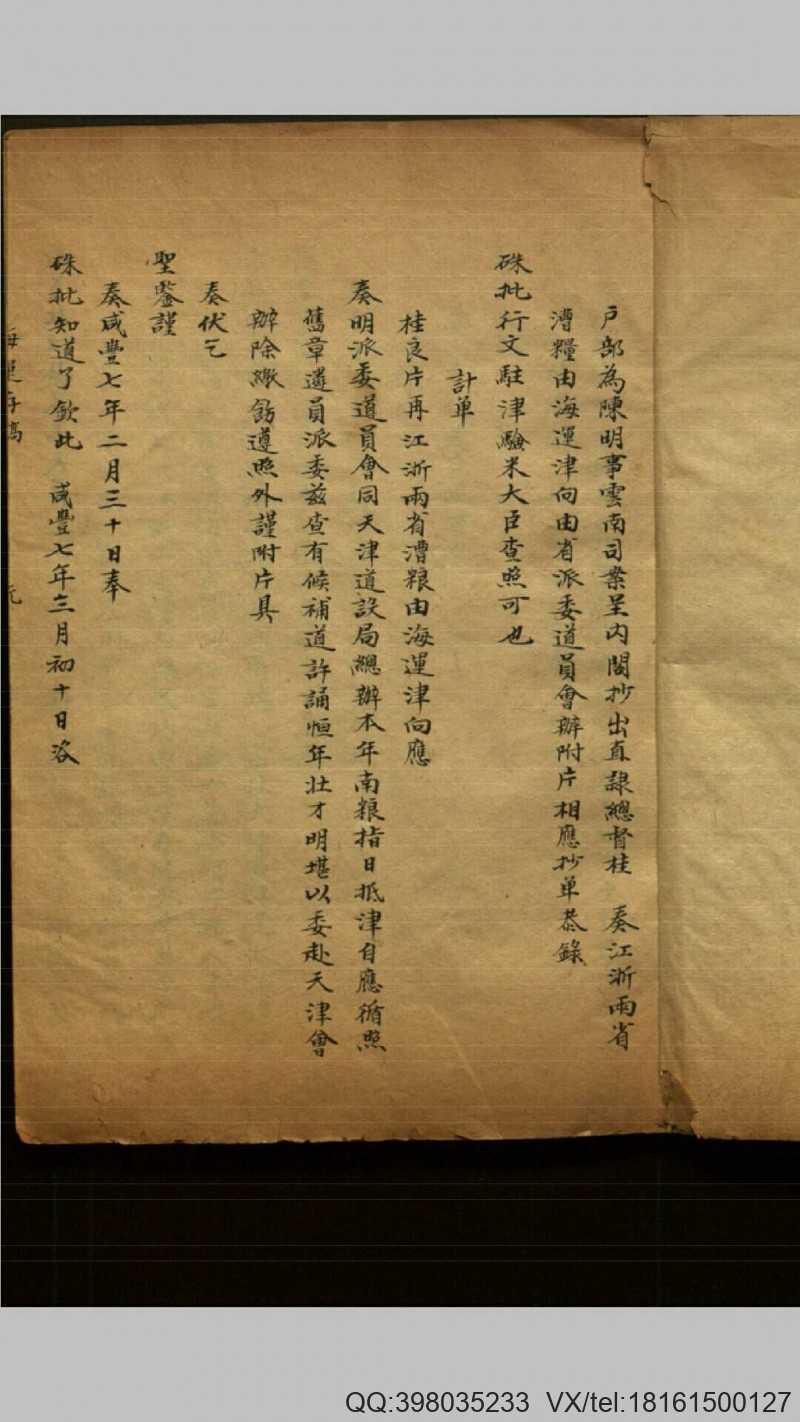 戶部為陳明事雲南司案呈內閣抄出直隸總督桂　奏江浙兩省
漕糧由海運津向由省派委道員會辦附片相應抄单恭錄
硃批行文駐津驗米大臣查照可也
計单
桂良片再江浙兩省漕粮由海運津向應
奏明派委道員會同天津道設局總辦本年南粮指日抵津自應循照
舊章遴員派委兹查有候補道許誦恒年壯才明堪以委赴天津會
辦除繳飭遵照外謹附片具
奏伏乞
聖鑒謹
奏咸豐七年二月三十日奉
硃批知道了欽此　咸豐七年三月初十日咨
海運
QQ:398035233 VX/tel:18161500127